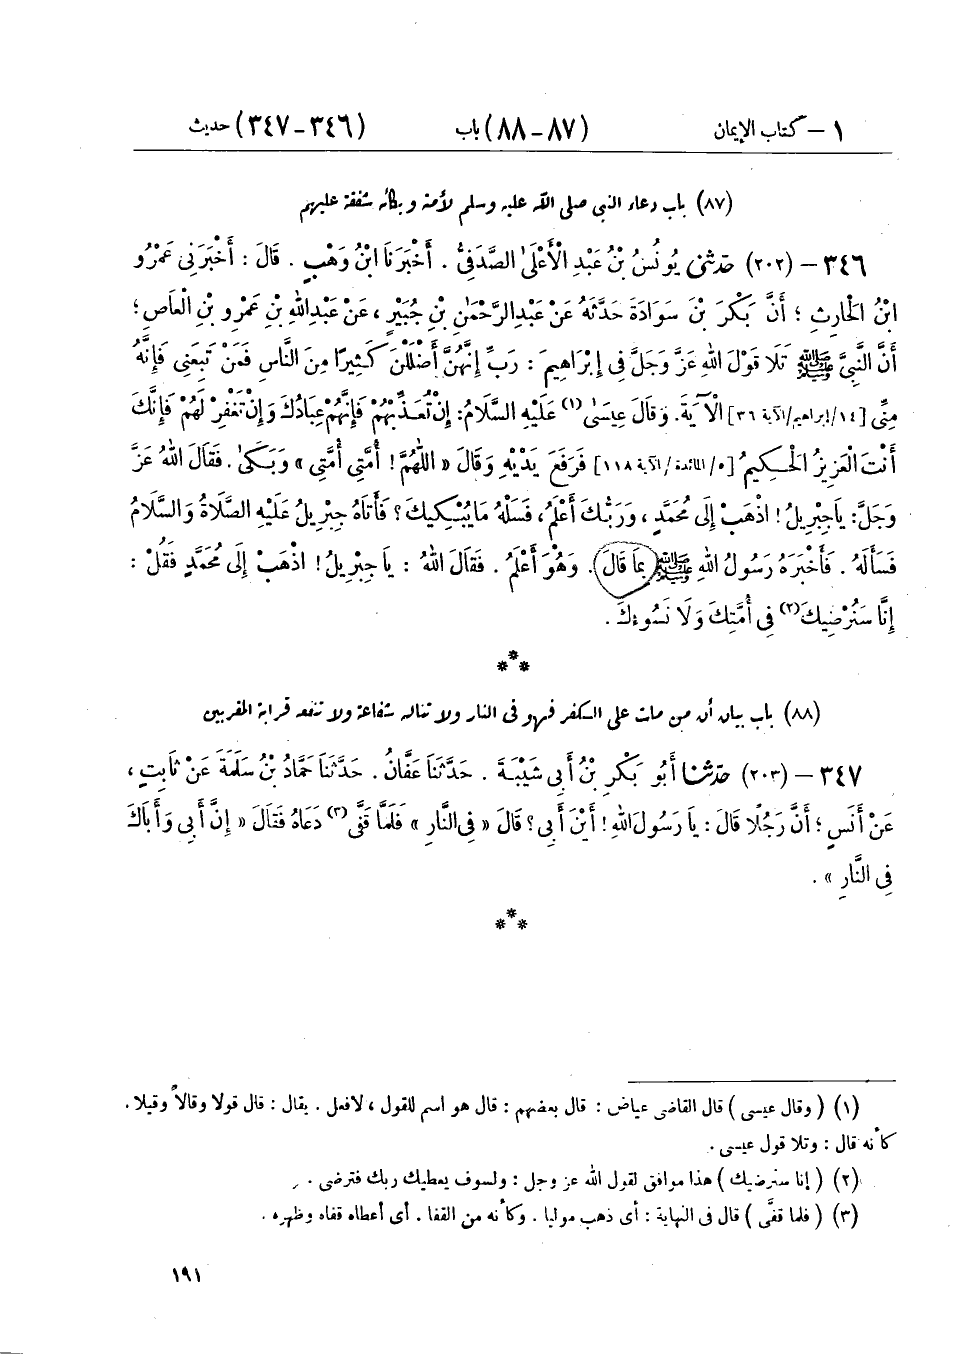 ١ – كتاب الإيمان (٨٧ – ٨٨) باب (٣٤٦ – ٣٤٧) حديث
(٨٧) باب دعاء النبي صلى الله عليه وسلم لأمته وبكائه شفقة عليهم
٣٤٦ – (٢٠٢) حَدَّثَنِي يُونُسُ بْنُ عَبْدِ الْأَعْلَىٰ الصَّدَفِيُّ . أَخْبَرَنَا ابْنُ وَهْبٍ . قَالَ : أَخْبَرَنِي عَمْرُو
ابْنُ الْحَارِثِ ؛ أَنَّ بَكْرَ بْنَ سَوَادَةَ حَدَّثَهُ عَنْ عَبْدِ الرَّحْمَٰنِ بْنِ جُبَيْرٍ ، عَنْ عَبْدِ اللهِ بْنِ عَمْرِو بْنِ الْعَاصِ ؛
أَنَّ النَّبِيَّ ﷺ تَلَا قَوْلَ اللهِ عَزَّ وَجَلَّ فِي إِبْرَاهِيمَ : رَبِّ إِنَّهُنَّ أَضْلَلْنَ كَثِيرًا مِنَ النَّاسِ فَمَنْ تَبِعَنِي فَإِنَّهُ
مِنِّي [١٤/إبراهيم/الآية ٣٦] الْآيَةَ . وَقَالَ عِيسَىٰ (١) عَلَيْهِ السَّلَامُ : إِنْ تُعَذِّبْهُمْ فَإِنَّهُمْ عِبَادُكَ وَإِنْ تَغْفِرْ لَهُمْ فَإِنَّكَ
أَنْتَ الْعَزِيزُ الْحَكِيمُ [٥/المائدة/الآية ١١٨] فَرَفَعَ يَدَيْهِ وَقَالَ « اللَّهُمَّ ! أُمَّتِي أُمَّتِي » وَبَكَىٰ . فَقَالَ اللهُ عَزَّ
وَجَلَّ : يَا جِبْرِيلُ ! اذْهَبْ إِلَى مُحَمَّدٍ ، وَرَبُّكَ أَعْلَمُ ، فَسَلْهُ مَا يُبْكِيكَ ؟ فَأَتَاهُ جِبْرِيلُ عَلَيْهِ الصَّلَاةُ وَالسَّلَامُ
فَسَأَلَهُ . فَأَخْبَرَهُ رَسُولُ اللهِ ﷺ بِمَا قَالَ . وَهُوَ أَعْلَمُ . فَقَالَ اللهُ : يَا جِبْرِيلُ ! اذْهَبْ إِلَى مُحَمَّدٍ فَقُلْ :
إِنَّا سَنُرْضِيكَ (٢) فِي أُمَّتِكَ وَلَا نَسُوءُكَ .
***
(٨٨) باب بيان أن من مات على الكفر فهو في النار ولا تناله شفاعة ولا تنفعه قرابة المقربين
٣٤٧ – (٢٠٣) حَدَّثَنَا أَبُو بَكْرِ بْنُ أَبِي شَيْبَةَ . حَدَّثَنَا عَفَّانُ . حَدَّثَنَا حَمَّادُ بْنُ سَلَمَةَ عَنْ ثَابِتٍ ،
عَنْ أَنَسٍ ؛ أَنَّ رَجُلًا قَالَ : يَا رَسُولَ اللهِ ! أَيْنَ أَبِي ؟ قَالَ « فِي النَّارِ » فَلَمَّا قَفَّى (٣) دَعَاهُ فَقَالَ « إِنَّ أَبِي وَأَبَاكَ
فِي النَّارِ » .
***
(١) ( وقال عيسى ) قال القاضي عياض : قال بعضهم : قال هو اسم للقول ، لا فعل . يقال : قال قولا وقالاً وقيلا .
كأنه قال : وتلا قول عيسى .
(٢) ( إنا سنرضيك ) هذا موافق لقول الله عز وجل : ولسوف يعطيك ربك فترضى .
(٣) ( فلما قفَّى ) قال في النهاية : أي ذهب موليا . وكأنه من القفا . أي أعطاه قفاه وظهره .
١٩١